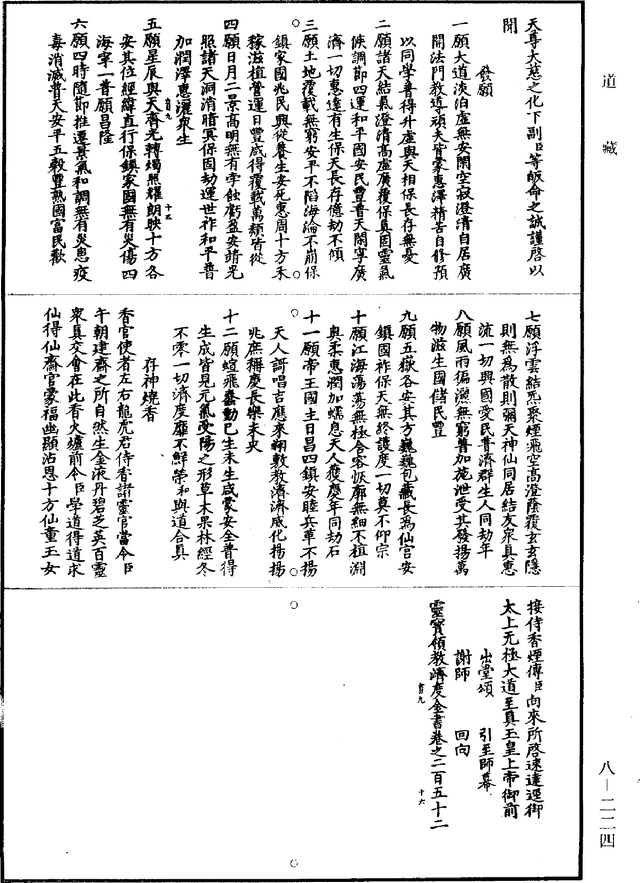 道藏
天尊大慈之化下副臣等皈命之誠謹啓以
聞
發願
一願大道淡泊虛無安閑空寂澄清自居廣
開法門教導頑夫皆蒙惠澤精苦自修預
以同學普得升虛與天相保長存無憂
二願諸天結氣澄清高虛廣覆保真固靈氣
候調節四運和平國安民豐普天閑寧廣
濟一切惠達有生保天長存億劫不傾
三願土地覆載無窮安平不陷海淪不崩保
鎮家國兆民興從養生安死惠周十方禾
稼滋植營運日豐咸得覆載萬類皆從
四願日月二景高明無有孛蝕虧盈安靖光
照諸天洞消暗冥保固劫運世祚和平普
加潤澤惠灑衆生
五願星辰與天齊光轉燭照耀朗映十方各
安其位經緯直行保鎮家國無有災傷四
海寧一普願昌隆
六願四時隨節推遷景氣和調無有災患疫
毒消滅普天安平五穀豐熟國富民歡
十五
七願浮雲結炁聚煙飛空高澄蔭覆玄玄隱
則無為散則彌天神仙同居結友衆真惠
流一切興國愛民普濟群生人同劫年
八願風雨徧灑無窮普加施泄受其發揚萬
物滋生國儲民豐
九願五嶽各安其方巍巍包藏長為仙宮安
鎮國祚保天無終護度一切莫不仰宗
十願江海蕩蕩無極含容恢廓無細不植淵
奧柔惠潤加蠕息天人獲慶年同劫石
十一願帝王國主日昌四鎮安睦兵革不揚
天人謌唱吉應來翔敷教濟濟威化揚揚
兆庶稱慶長樂未央
十二願蝖飛蠢動已生未生咸蒙安全普得
生成皆見元氣受陽之形草木果林經冬
不零一切濟度靡不鮮榮和與道合真
存神燒香
香官使者左右龍虎君侍香諸靈官當令臣
午朝建齋之所自然生金液丹碧芝英百靈
衆真交會在此香火爐前令臣學道得道求
仙得仙齋官蒙福幽顯沾恩十方仙童玉女
接侍香煙傳臣向來所啓速達逕御
太上無極大道至真玉皇上帝御前
出堂頌　引至師幕
謝師　回向
靈寶領教濟度金書卷之二百五十二
十六
八－二二四